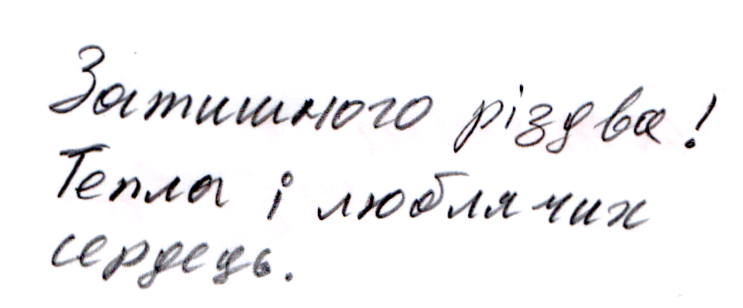 Затишного різдва!
Тепла і люблячих
сердець.